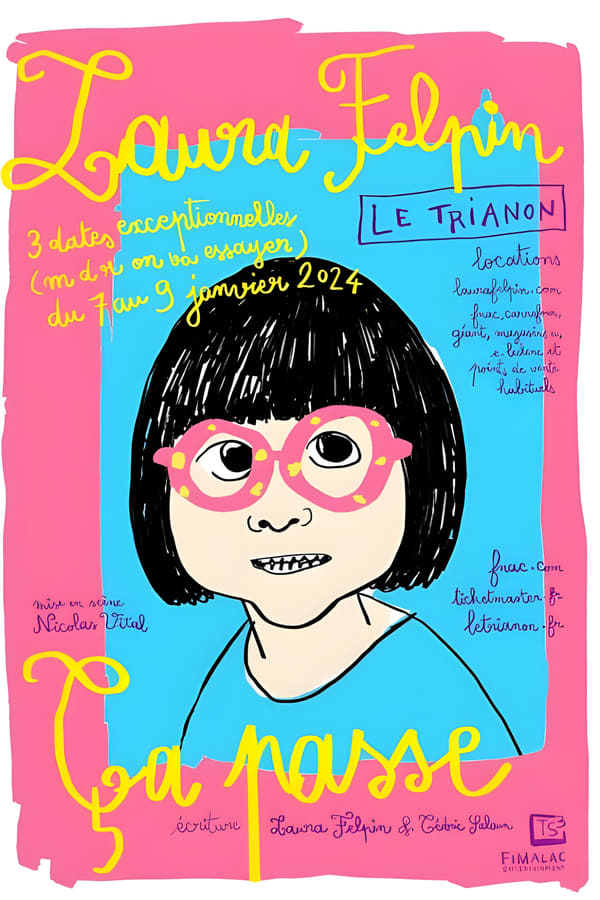 Laura Felpin
LE TRIANON
3 dates exceptionnelles
(mdr on va essayer)
du 7 au 9 janvier 2024
locations
laurafelpin.com
fnac, carrefour,
géant, magasins u,
e. leclerc et
points de vente
habituels
fnac.com
tichetmaster.fr
letrianon.fr
mise en scène
Nicolas Vital
Ça passe
écriture Laura Felpin & Cédric Salaun
TS3
FIMALAC
ENTERTAINMENT